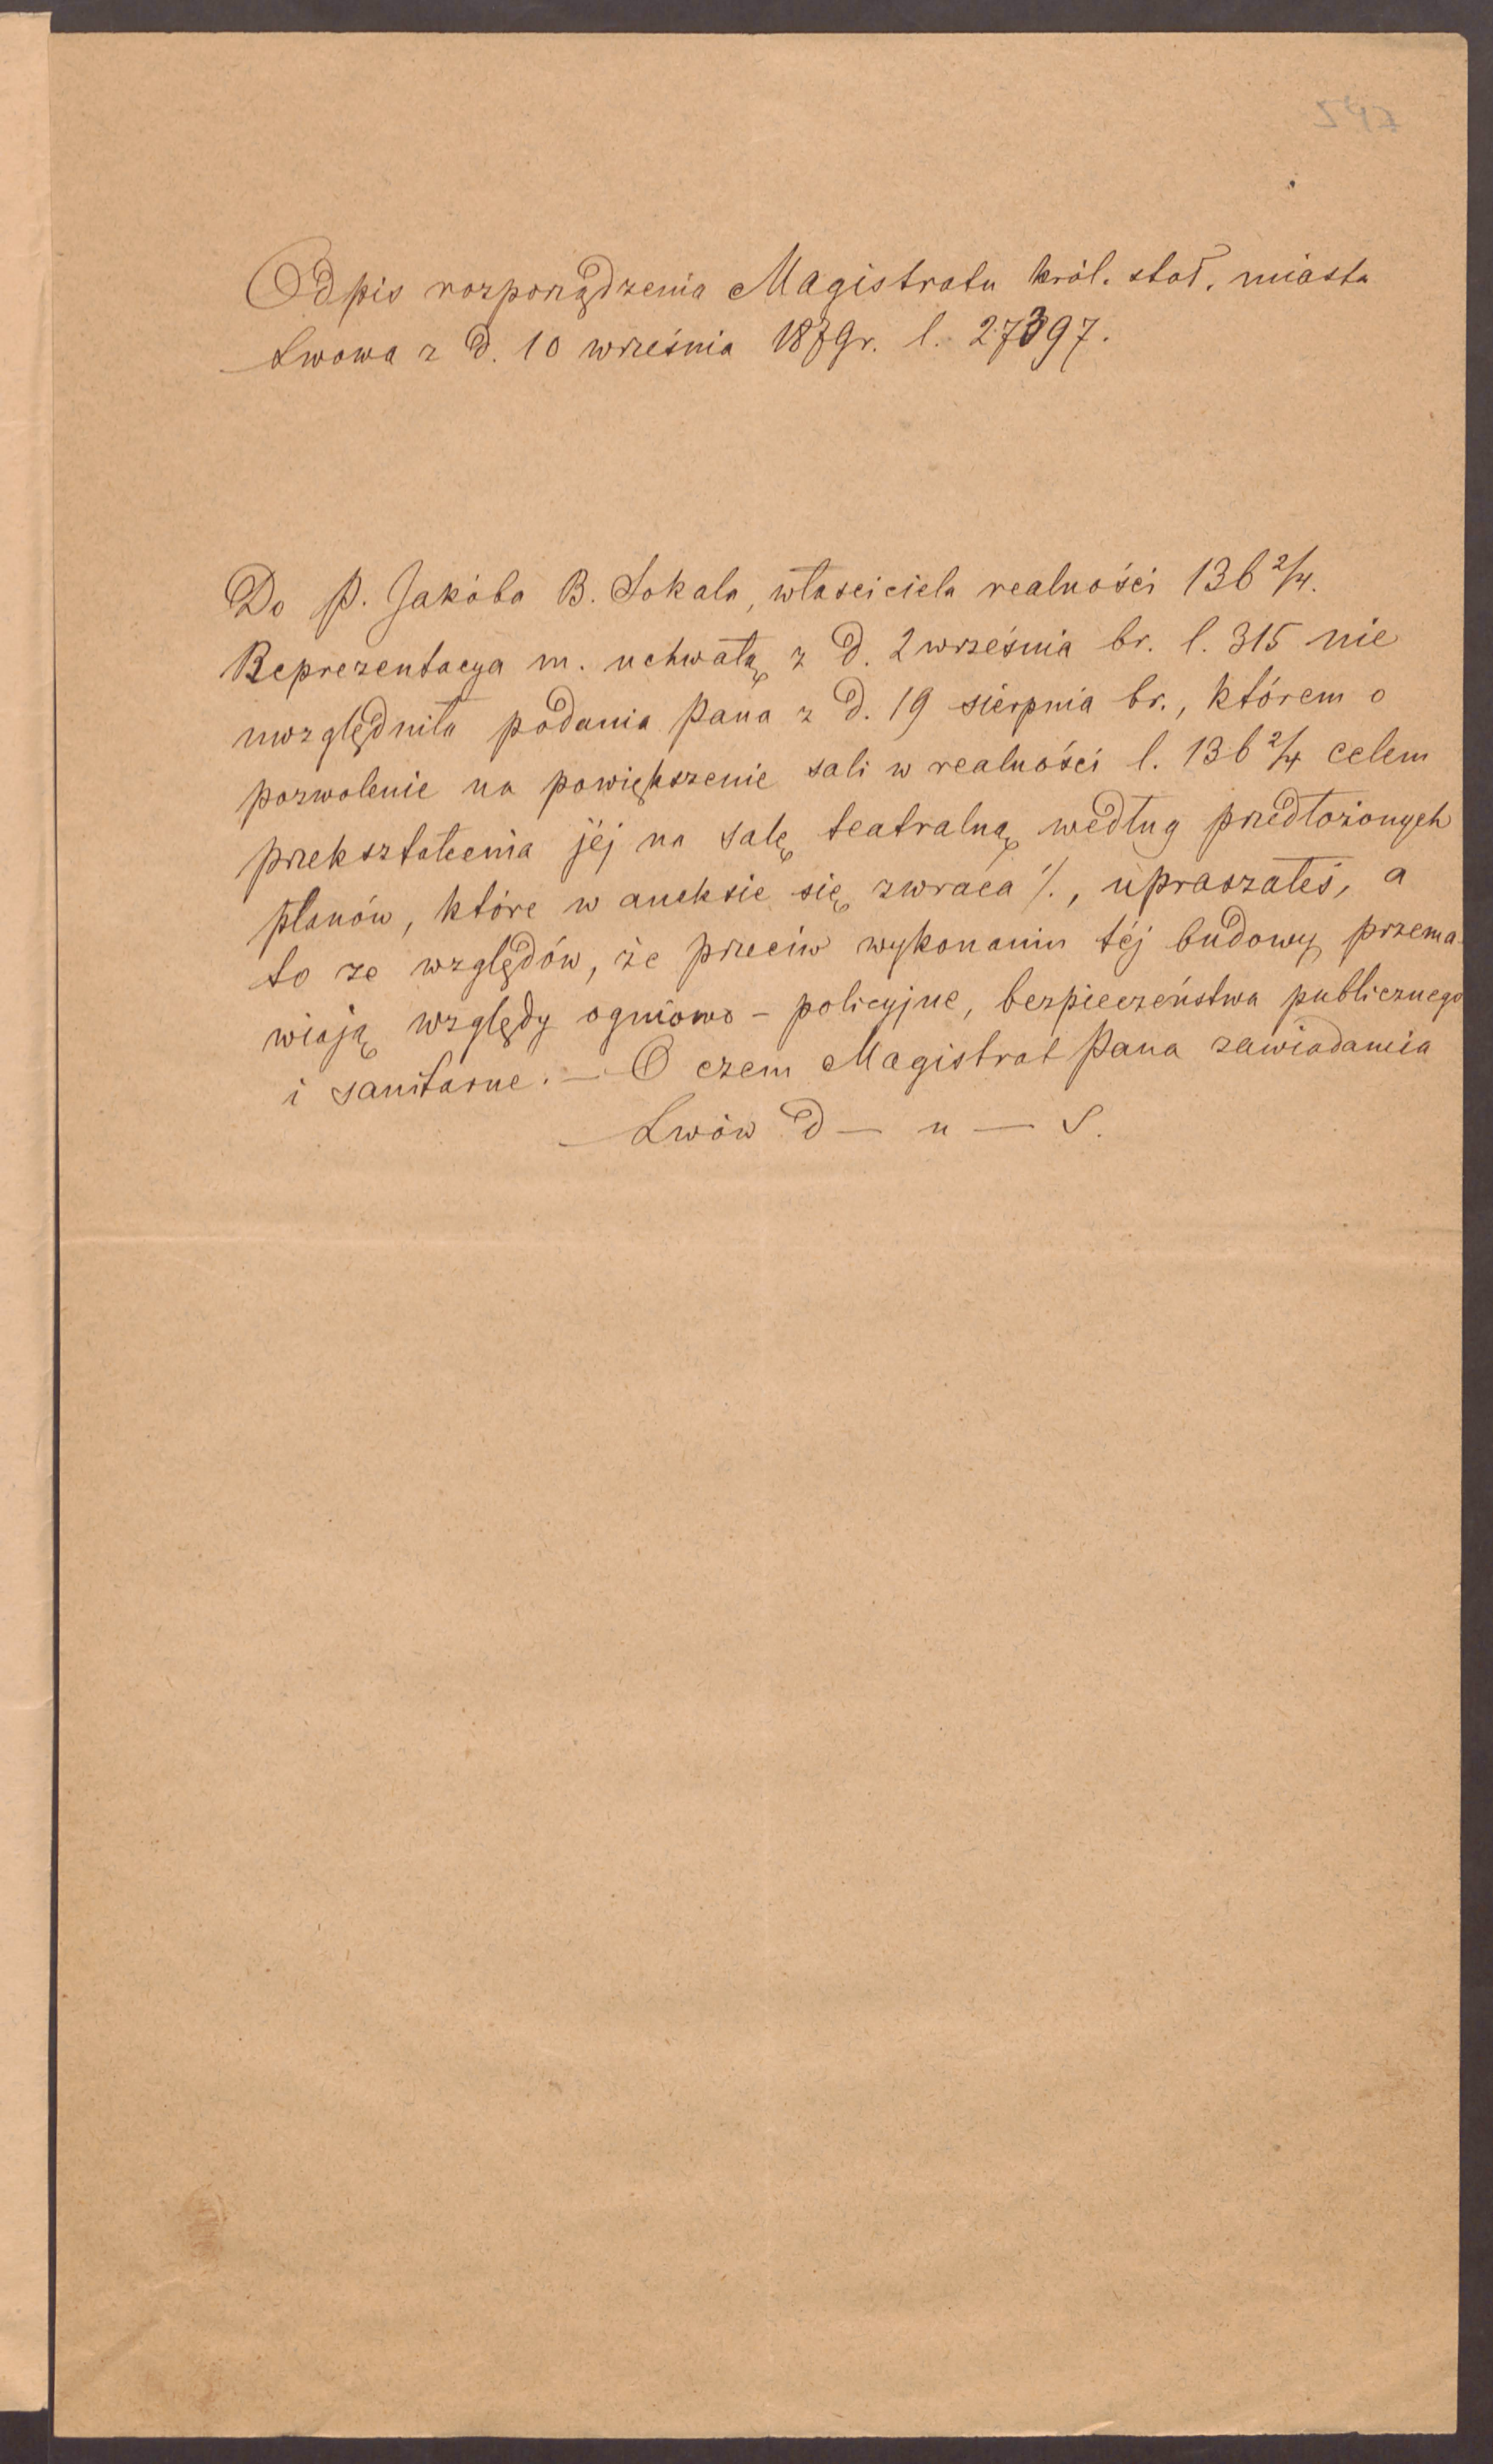 Odpis rozporządzenia Magistratu król. stoł. miasta
Lwowa z d. 10 września 1879r. l. 27397.
Do P. Jakóba B. Sokala, właściciela realności 136 2/4.
Reprezentacya m. uchwałą z d. 2 września br. l. 315 nie
uwzględniła podania Pana z d. 19 sierpnia br., którem o
pozwolenie na powiększenie sali w realności l. 136 2/4 celem
przekształcenia jéj na salę teatralną według przedłożonych
planów, które w aneksie się zwraca ./., upraszałeś, a
to ze względów, że przeciw wykonaniu téj budowy przema-
wiają względy ogniowo - policyjne, bezpieczeństwa publicznego
i sanitarne. — O czem Magistrat Pana zawiadamia
Lwów d — u — S.